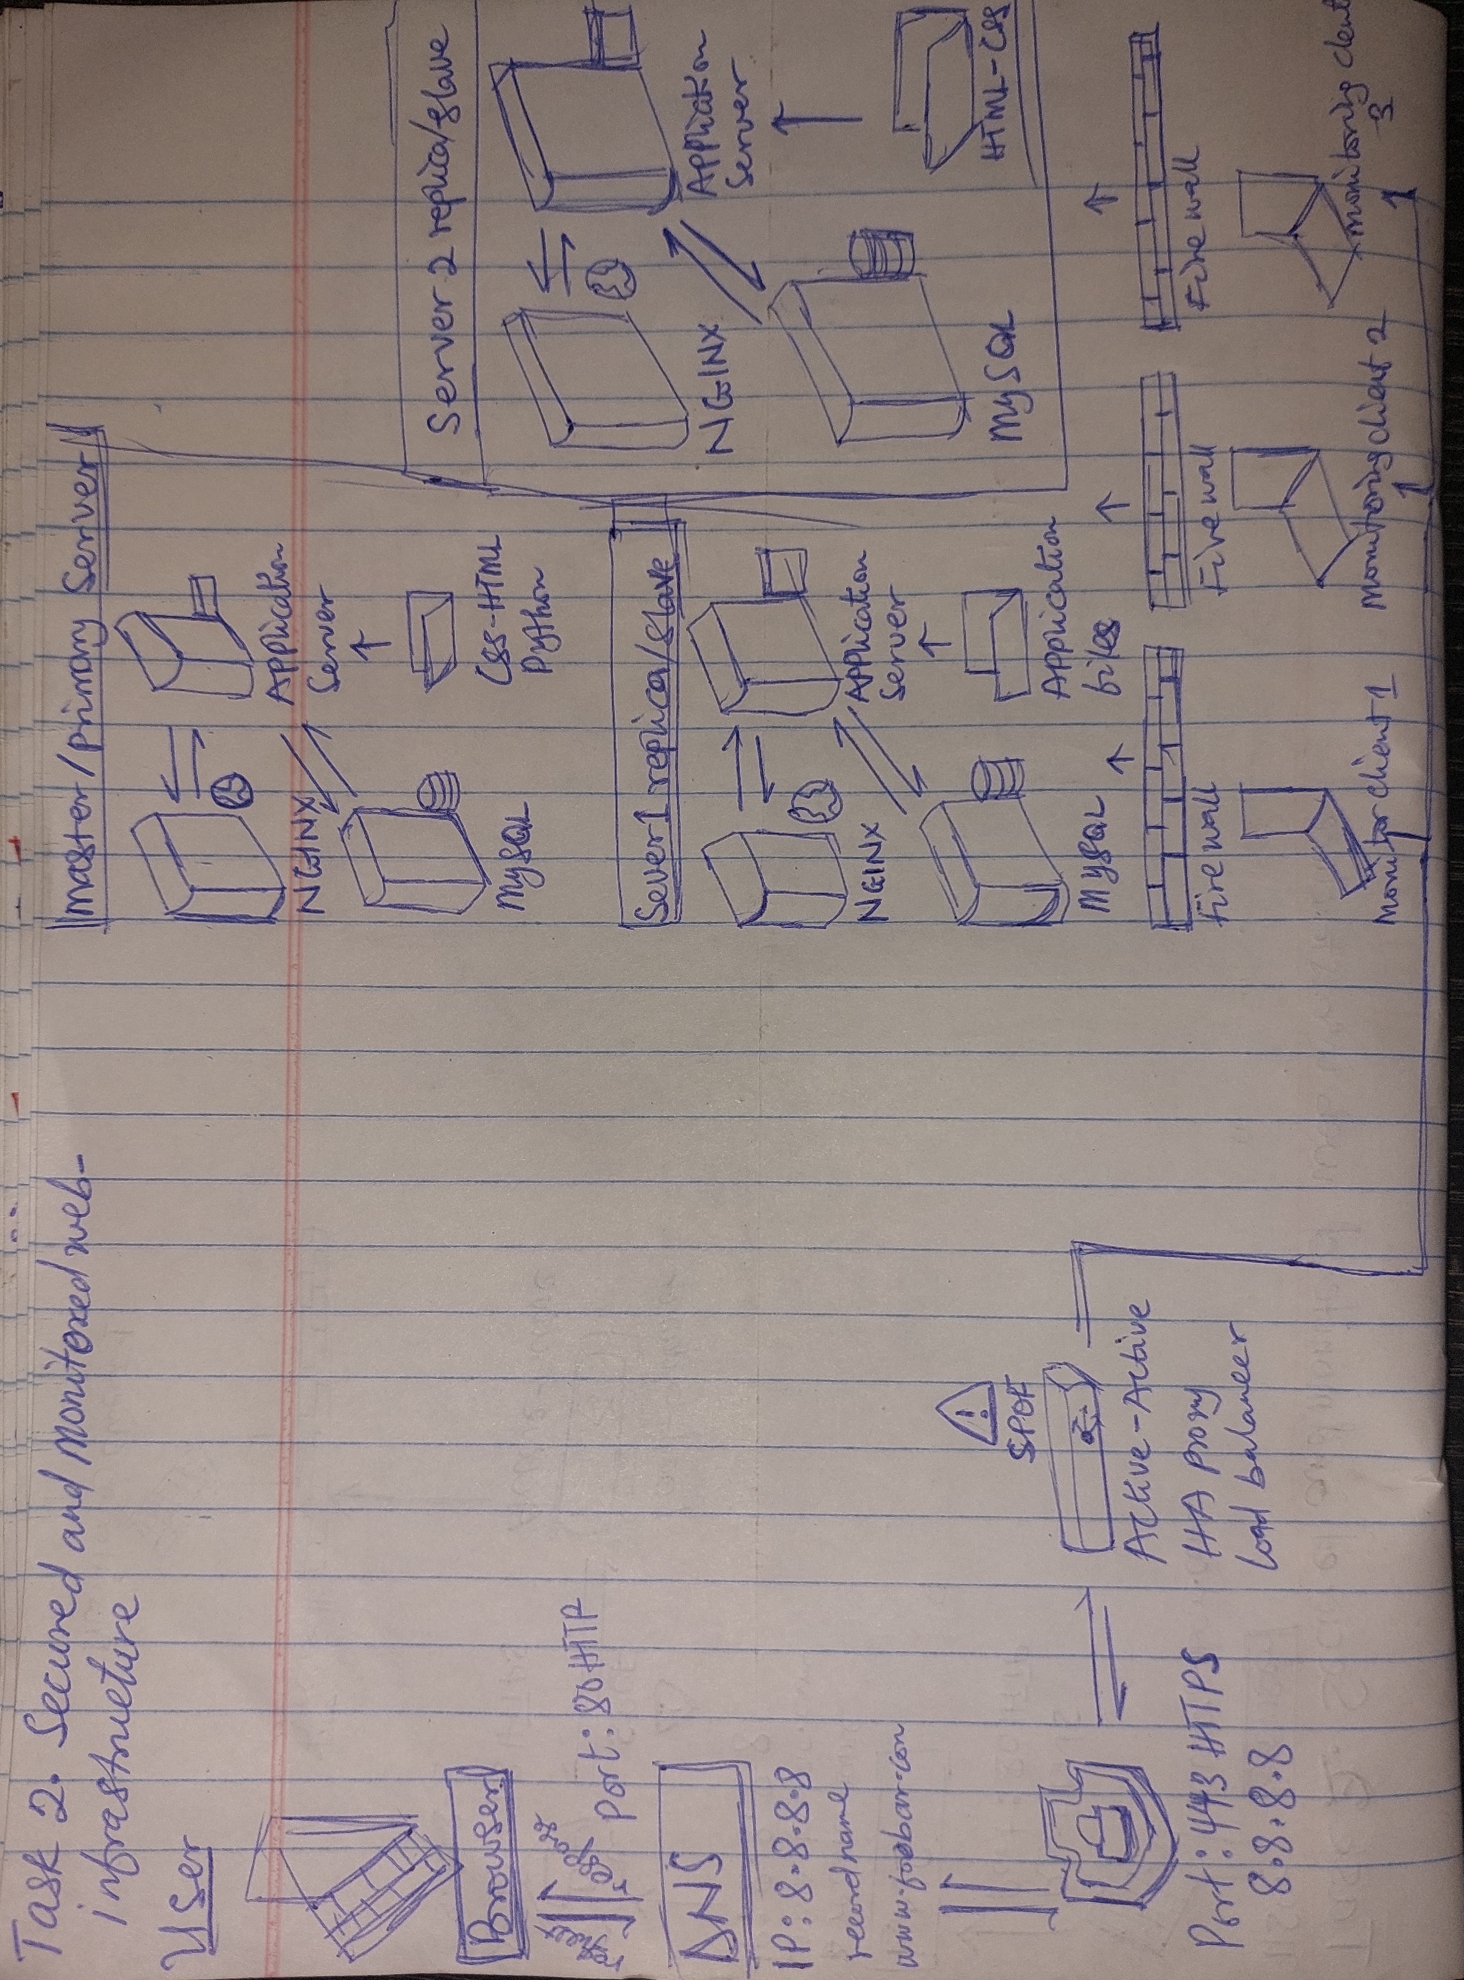 Task 2. Secured and monitored web-
infrastructure
User
Browser
Port: 80 HTTP
DNS
IP: 8.8.8.8
record name
www.foobar.com
Port: 443 HTTPS
8.8.8.8
SPOF
Active-Active
HA proxy
Load balancer
Master/primary Server
Application
Server
NGINX
CSS-HTML
Python
MySQL
Sever 1 replica/slave
Application
Server
NGINX
Application
files
MySQL
Server 2 replica/slave
Application
Server
NGINX
HTML-CSS
MySQL
Fire wall
Fire wall
Fire wall
Monitor client 1
Monitoring client 2
Monitoring client
3